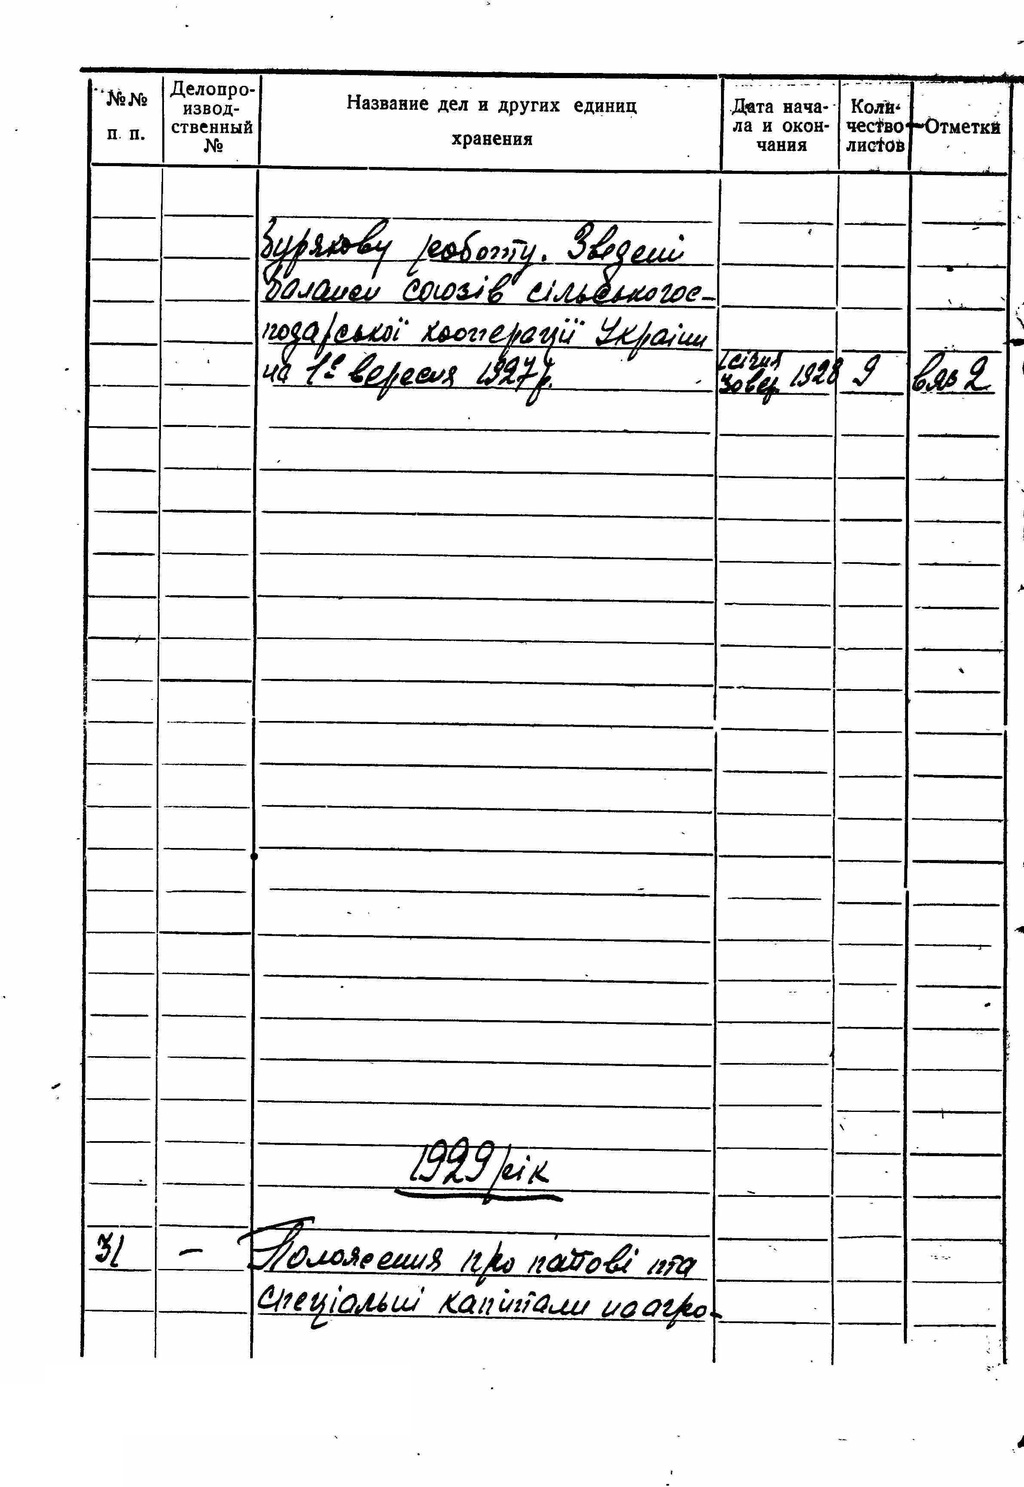 №№ п. п.
Делопро-
извод-
ственный
№
Название дел и других единиц
хранения
Дата нача-
ла и окон-
чания
Коли-
чество
листов
Отметки
бурякову роботу. Зведені
баланси союзів сільськогос-
подарської кооперації України
на 1е вересня 1927 р.
1 січня
30 вер. 1928
9
вяз 2
1929 рік
31 — Положення про пайові та
спеціальні капітали по агро-